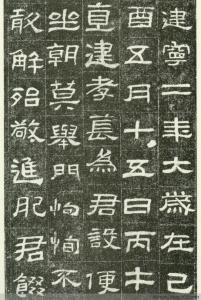 建寧二年大歲在己
酉五月十五日丙午
直建孝萇為君設便
坐朝莫舉門恂恂不
敢解殆敬進肥君餟